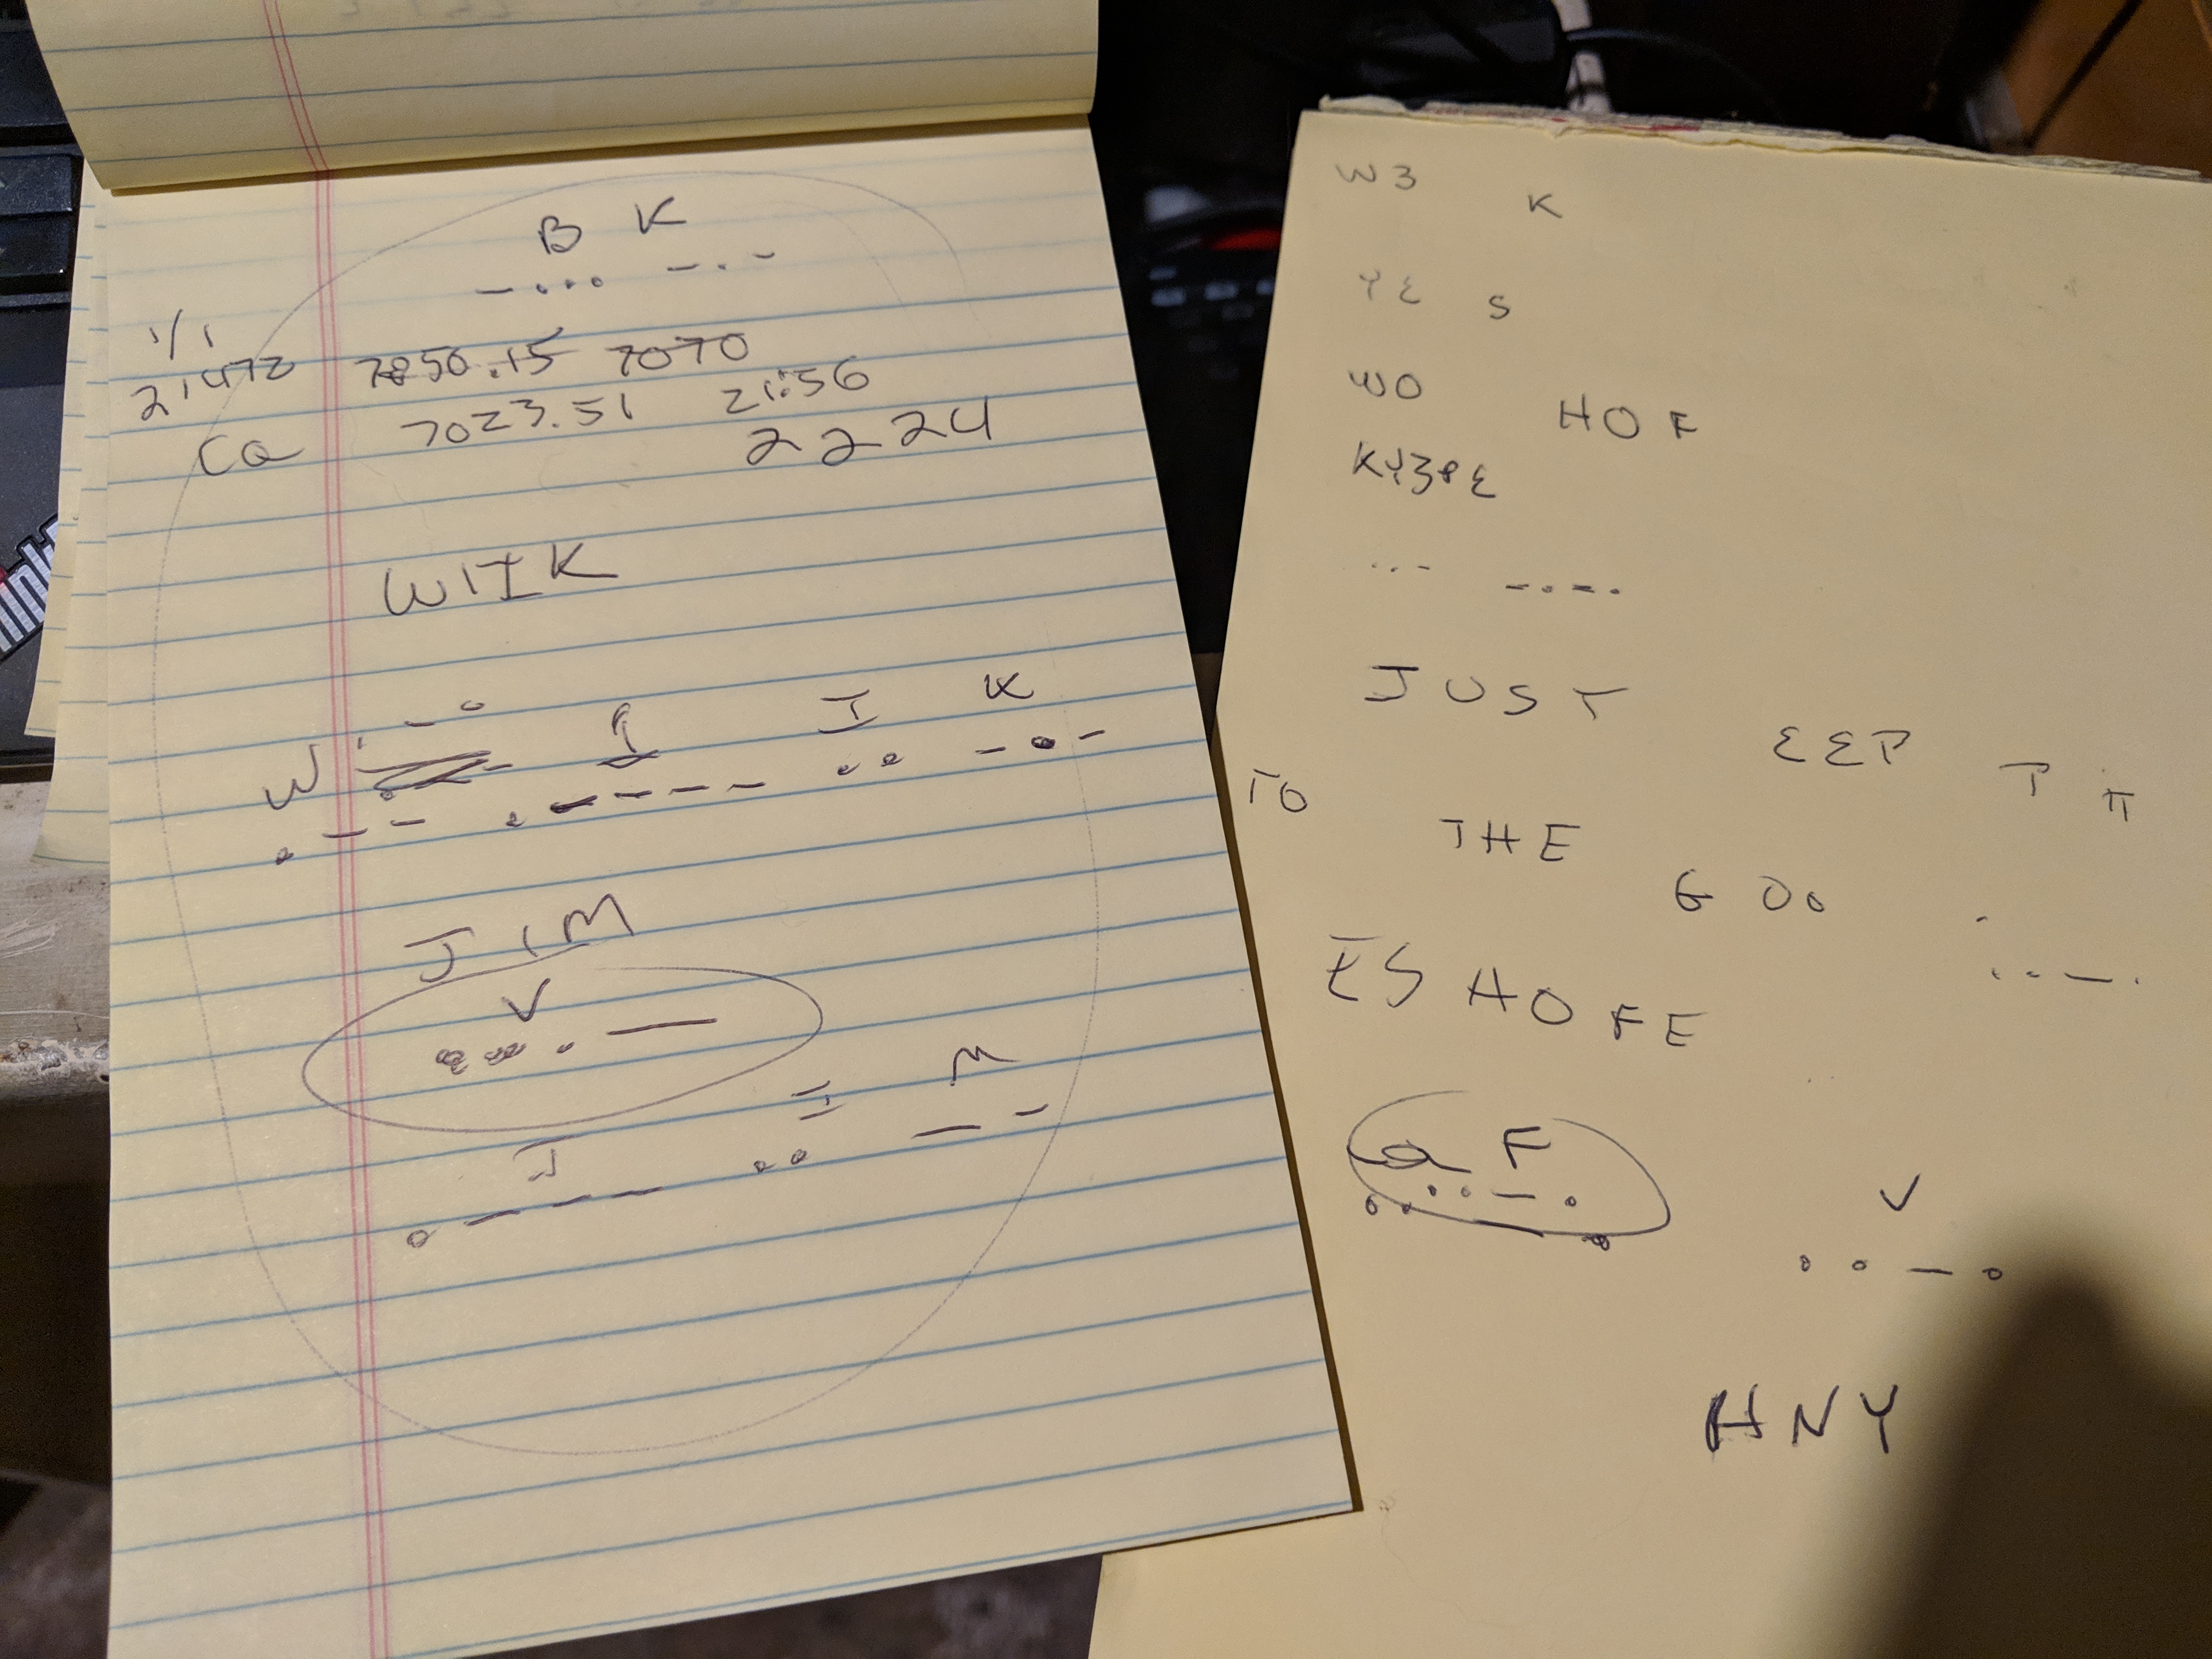 B K
-... -.-
1/1
2147Z 7850.15 7070
7023.51 21:56
CQ 2224
W1IK
W 1 I K
.-- .---- .. -.-
JIM
V
...-
J I M
.--- .. --
W3 K
YE S
WO HOF
KY3PE
..- -.-.
JUST EEP T
TO THE
G OO
ES HOFE
F
..-.
V
..-.
HNY